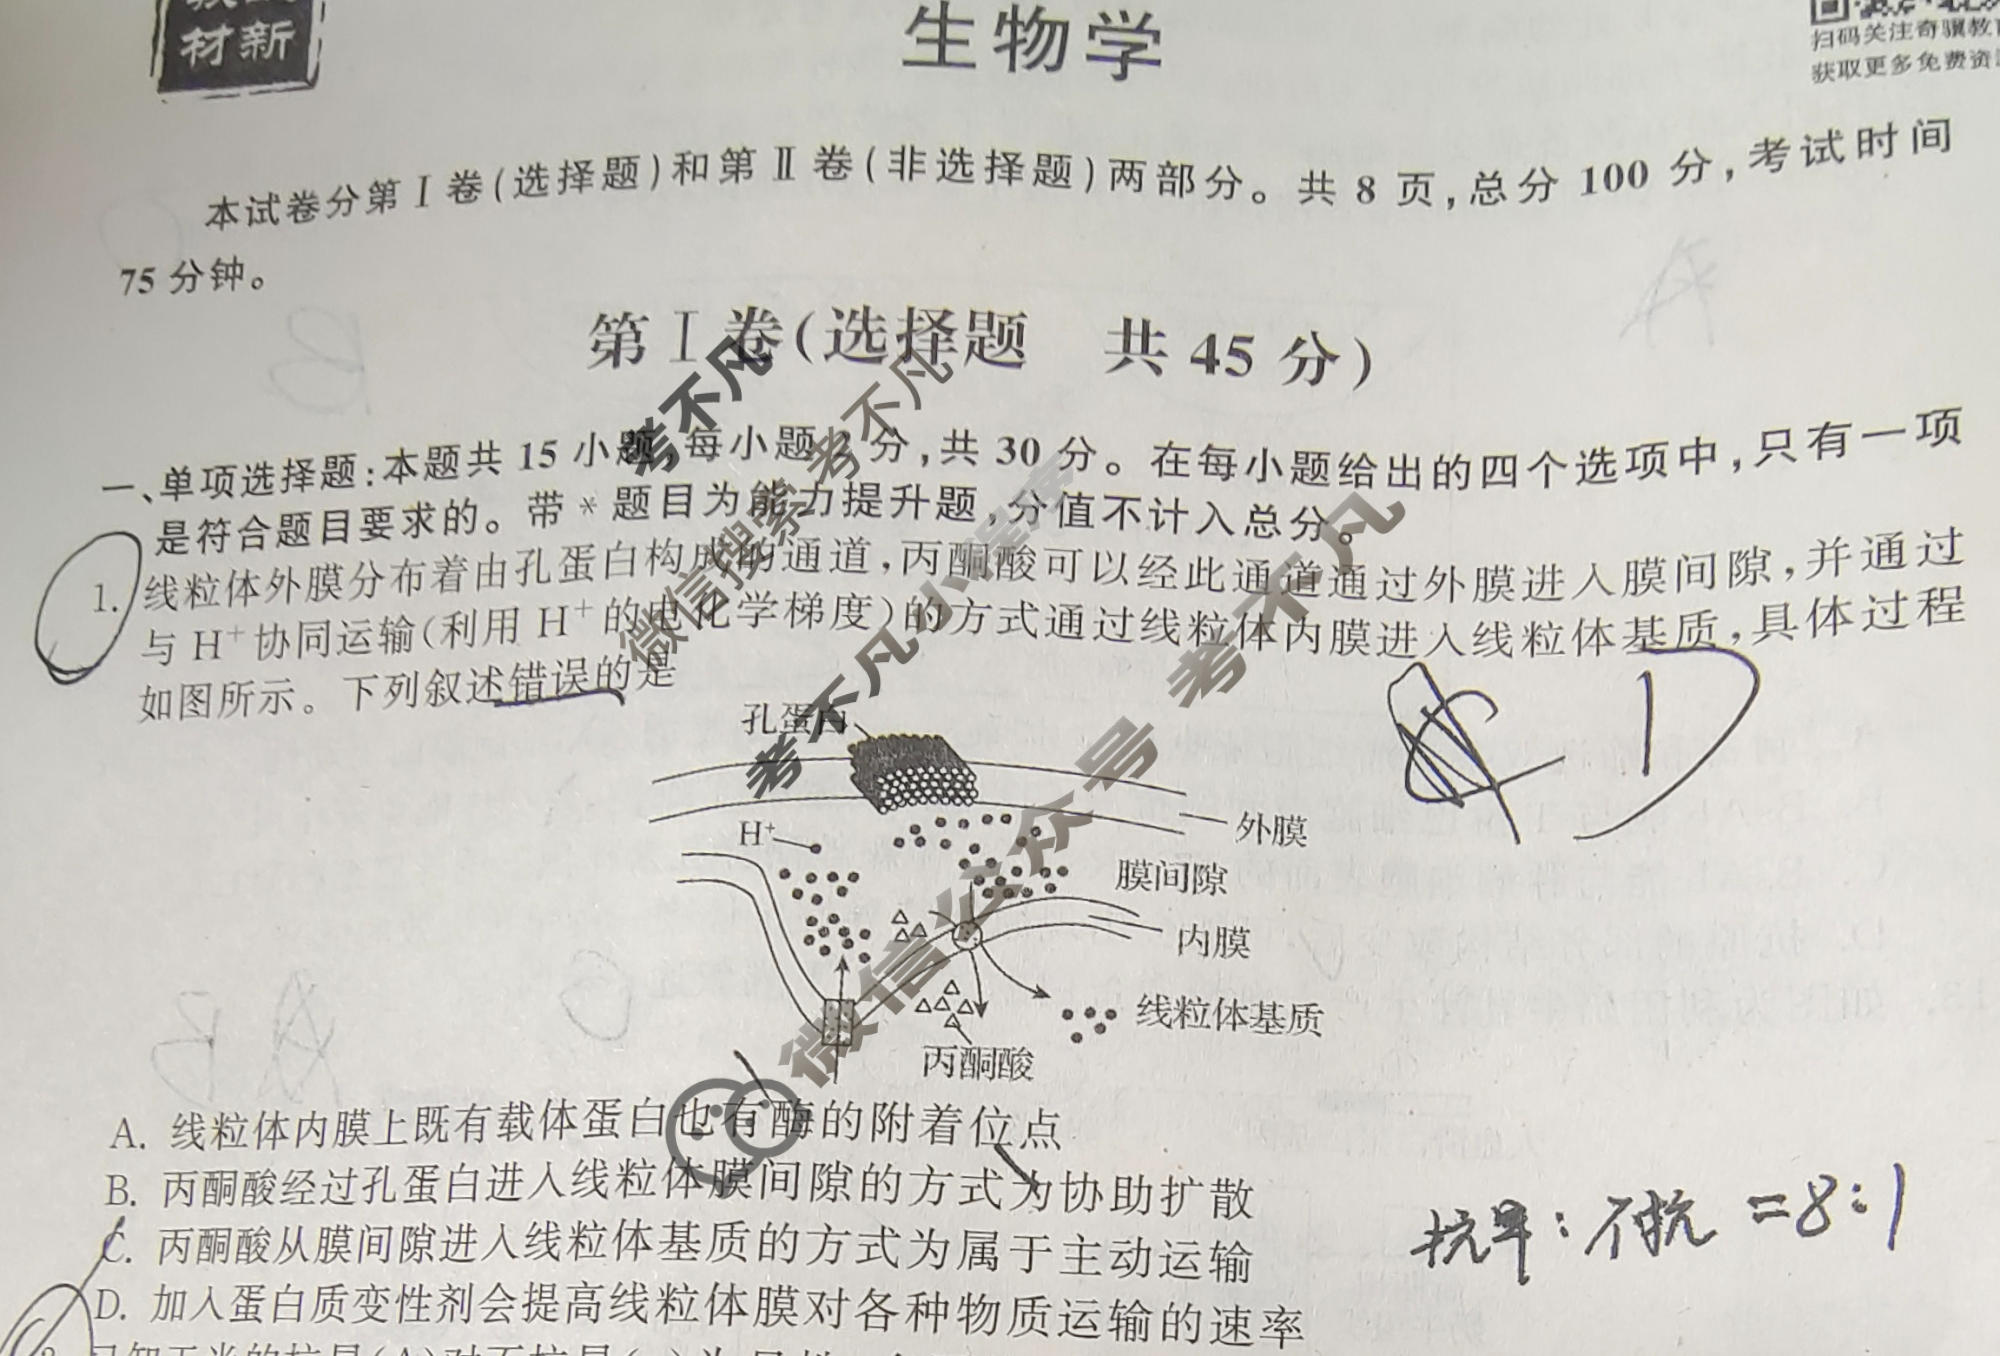 材新
生物学
扫码关注奇骥教育
获取更多免费资
本试卷分第Ⅰ卷(选择题)和第Ⅱ卷(非选择题)两部分。共 8 页,总分 100 分,考试时间
75 分钟。
第Ⅰ卷(选择题 共 45 分)
一、单项选择题:本题共 15 小题,每小题 2 分,共 30 分。在每小题给出的四个选项中,只有一项
是符合题目要求的。带 * 题目为能力提升题,分值不计入总分。
1. 线粒体外膜分布着由孔蛋白构成的通道,丙酮酸可以经此通道通过外膜进入膜间隙,并通过
与 H⁺ 协同运输(利用 H⁺ 的电化学梯度)的方式通过线粒体内膜进入线粒体基质,具体过程
如图所示。下列叙述错误的是
D
孔蛋白
H⁺
外膜
膜间隙
内膜
线粒体基质
丙酮酸
A. 线粒体内膜上既有载体蛋白也有酶的附着位点
B. 丙酮酸经过孔蛋白进入线粒体膜间隙的方式为协助扩散
C. 丙酮酸从膜间隙进入线粒体基质的方式为属于主动运输
D. 加入蛋白质变性剂会提高线粒体膜对各种物质运输的速率
抗旱:不抗=8:1
考不凡
微信搜索 考不凡
考不凡小程序
微信公众号 考不凡